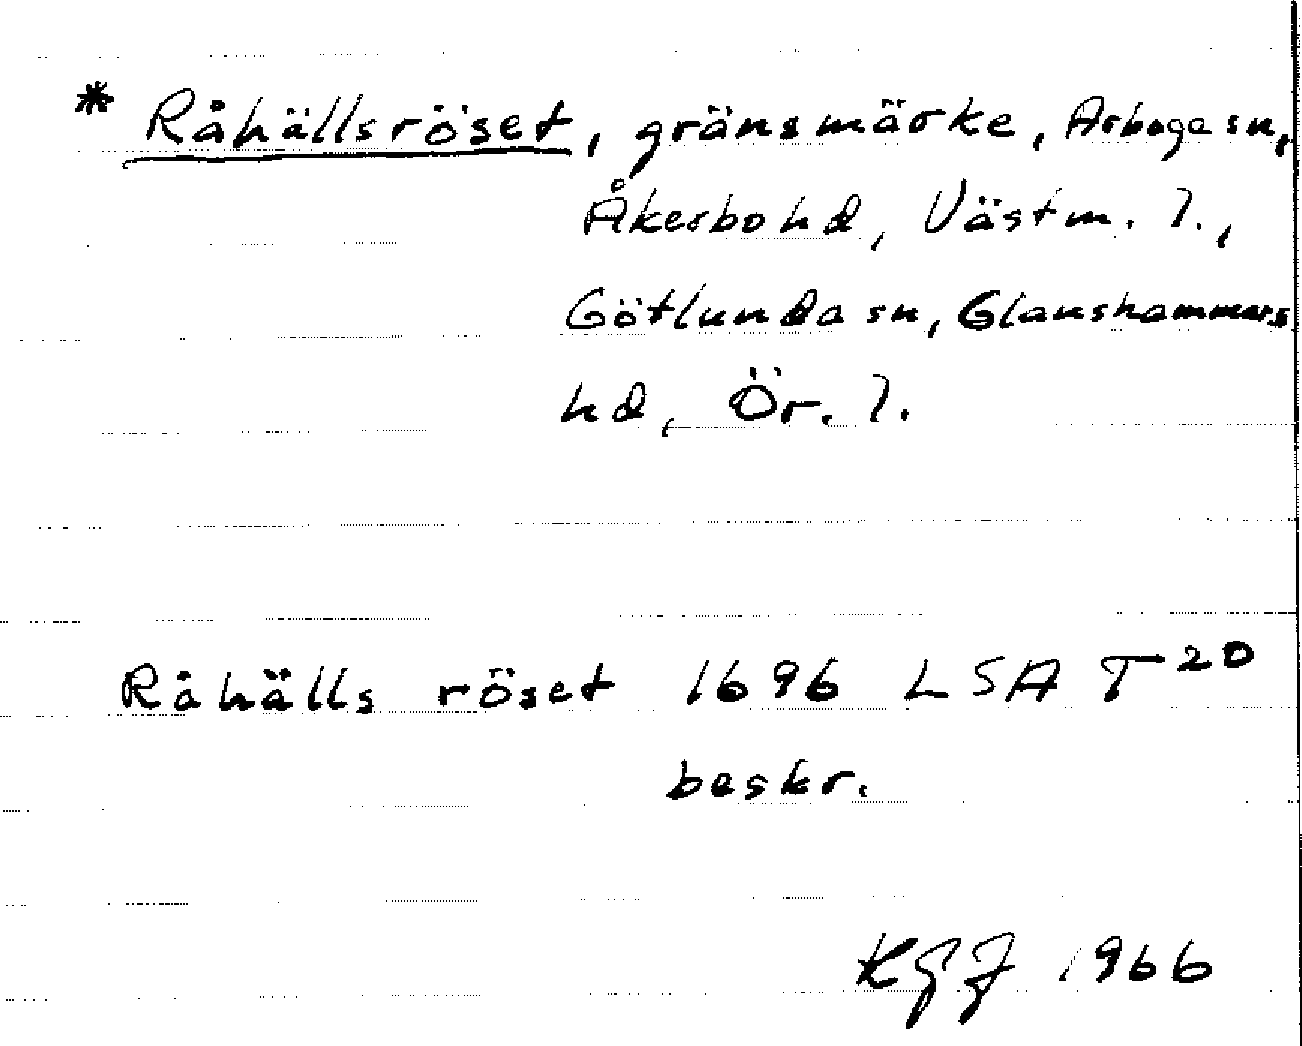 * Råhällsröset, gränsmärke, Arboga sn,
Åkerbo hd, Västm. l.,
Götlunda sn, Glanshammars
hd, Ör. l.
Råhälls röset 1696 LSA T 20
beskr.
1966